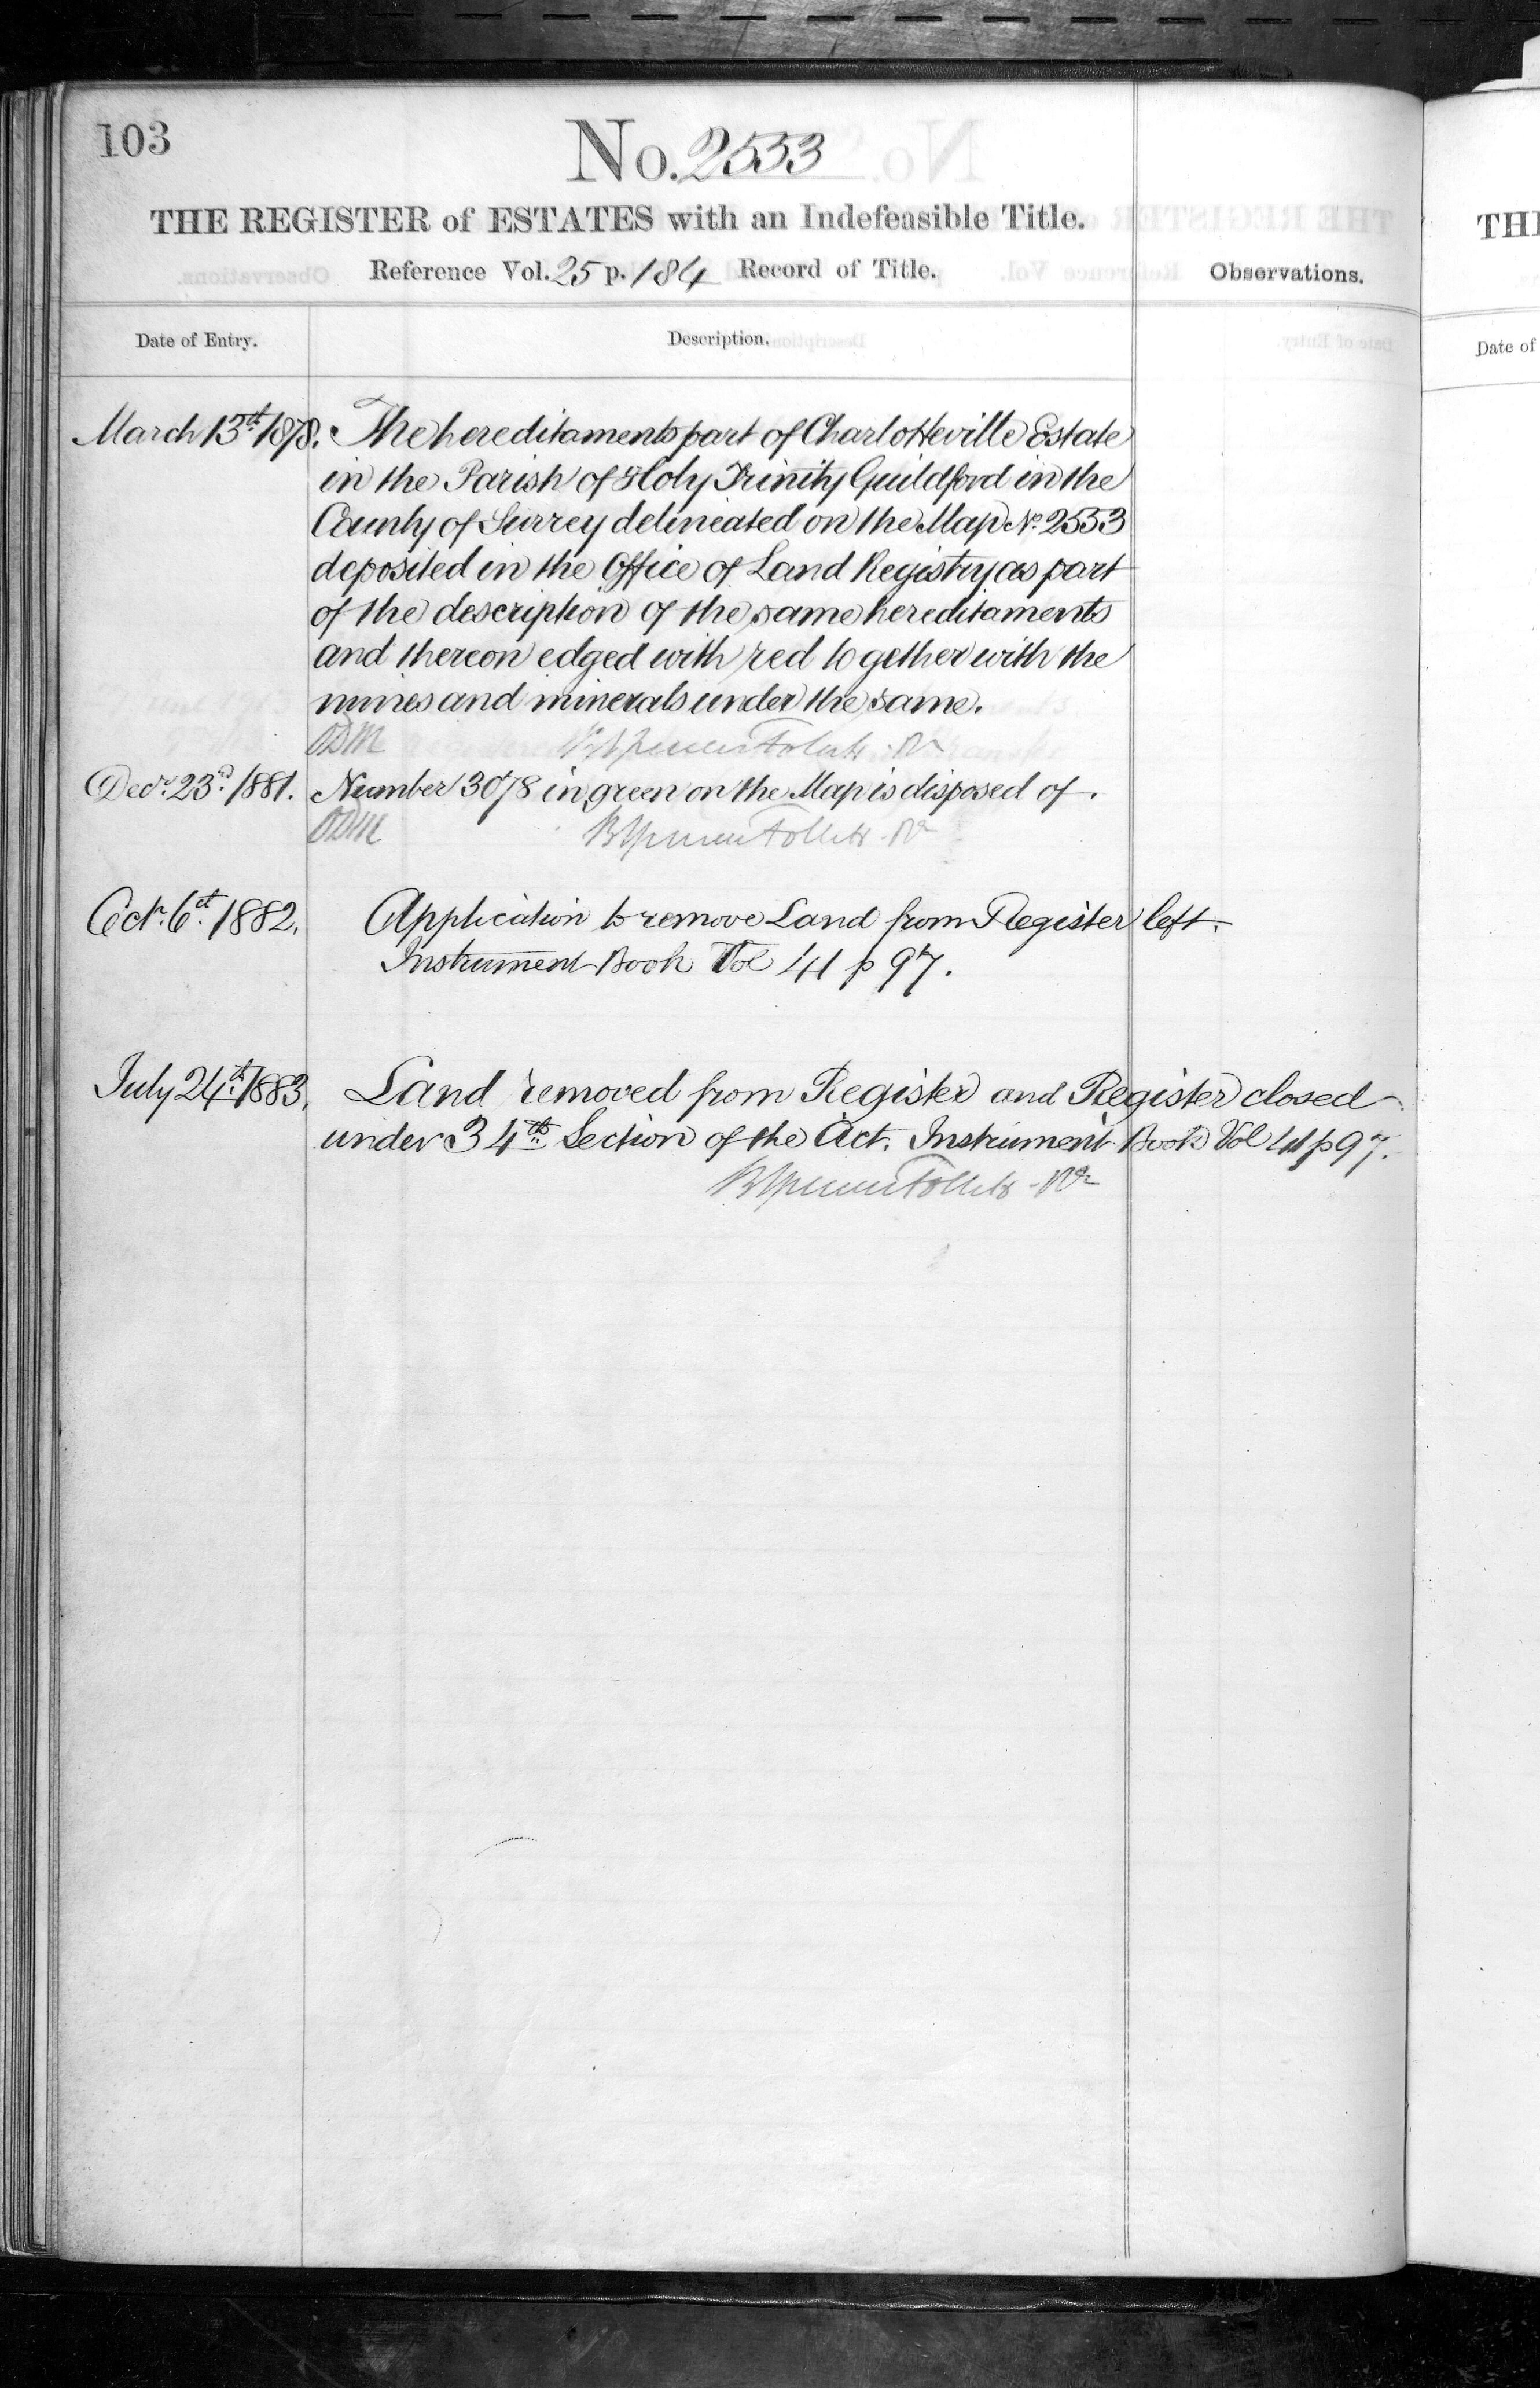 103
No. 2533
THE REGISTER of ESTATES with an Indefeasible Title.
Reference Vol. 25 p. 184 Record of Title.
Observations.
Date of Entry.
Description.
March 13th 1878. The hereditaments part of Charlotteville Estate
in the Parish of Holy Trinity Guildford in the
County of Surrey delineated on the Map No. 2533
deposited in the Office of Land Registry as part
of the description of the same hereditaments
and thereon edged with red together with the
mines and minerals under the same.
Decr. 23rd 1881. Number 3078 in green on the Map is disposed of.
Octr. 6th 1882. Application to remove Land from Register left.
Instrument Book Vol 41 p 97.
July 24th 1883. Land removed from Register and Register closed
under 34th Section of the Act. Instrument Book Vol 41 p 97.
TH
Date of